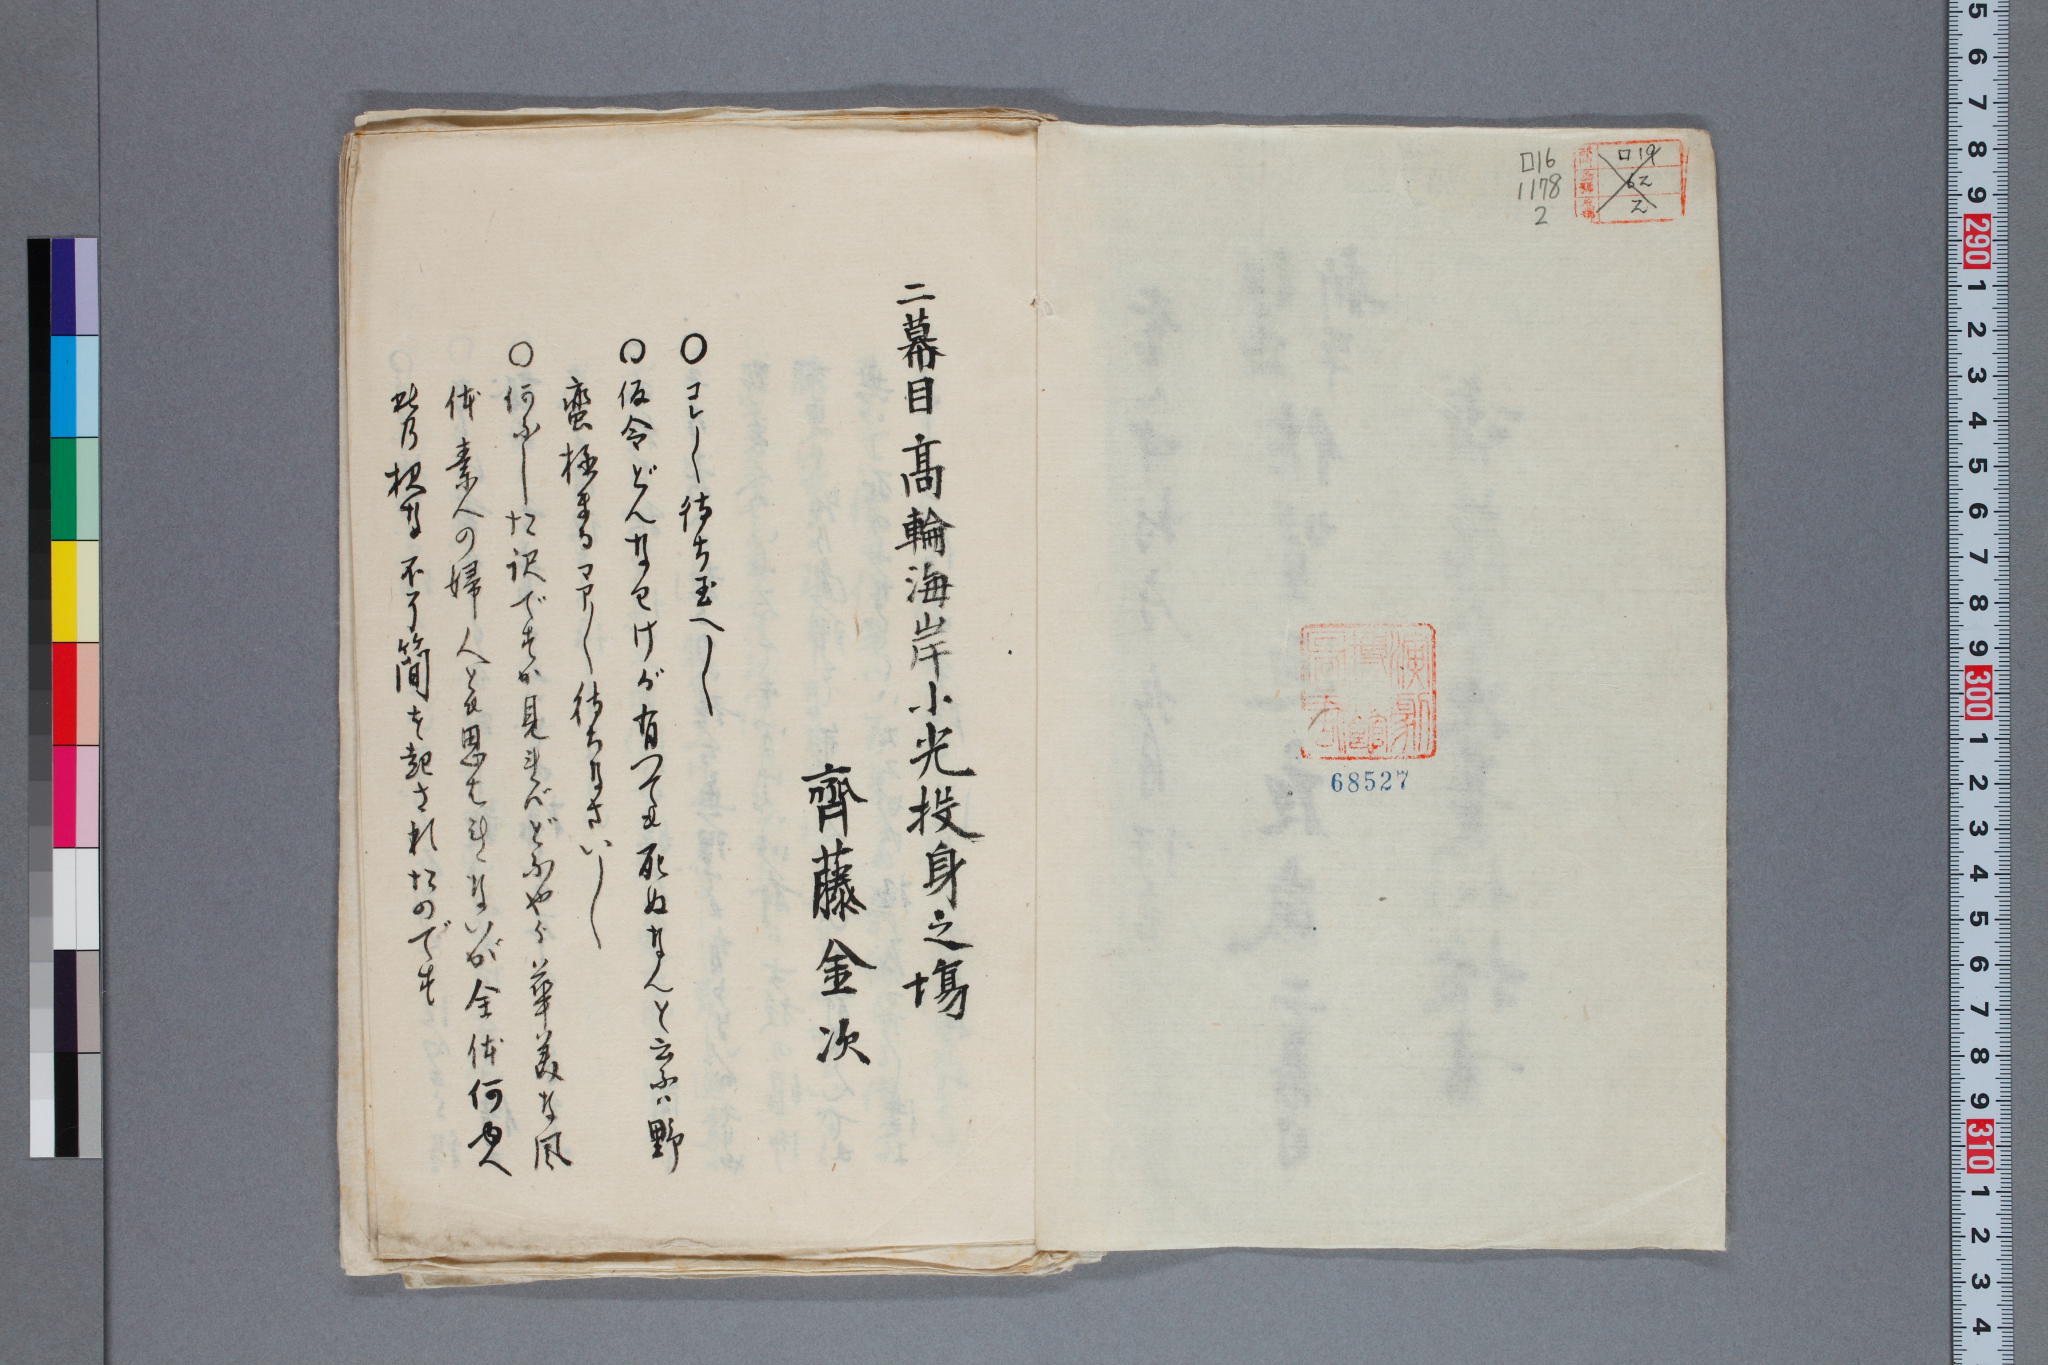 ロ16
1178
2
ロ19
62
2
演劇
博物館
68527
二幕目高輪海岸小光投身之場
齊藤金次
〇コレ〱待ち玉へ〱
〇仮令どんなわけが有つても死ぬなんと云ふハ野
蛮極まるマア〱待ちなさい〱
〇何ふした訳ですか見ればどふやら華美な風
体素人の婦人とも思はれないが全体何ゆへ
此乃様な不了簡を起されたのです